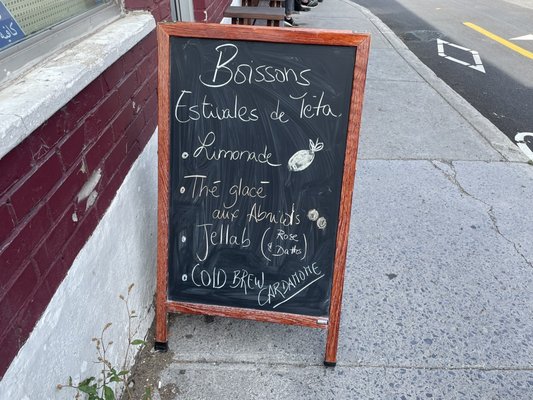 Boissons
Estivales de Téta
Limonade
Thé glacé
aux Abricots
Jellab (Rose
& Dattes)
COLD BREW
CARDAMOME